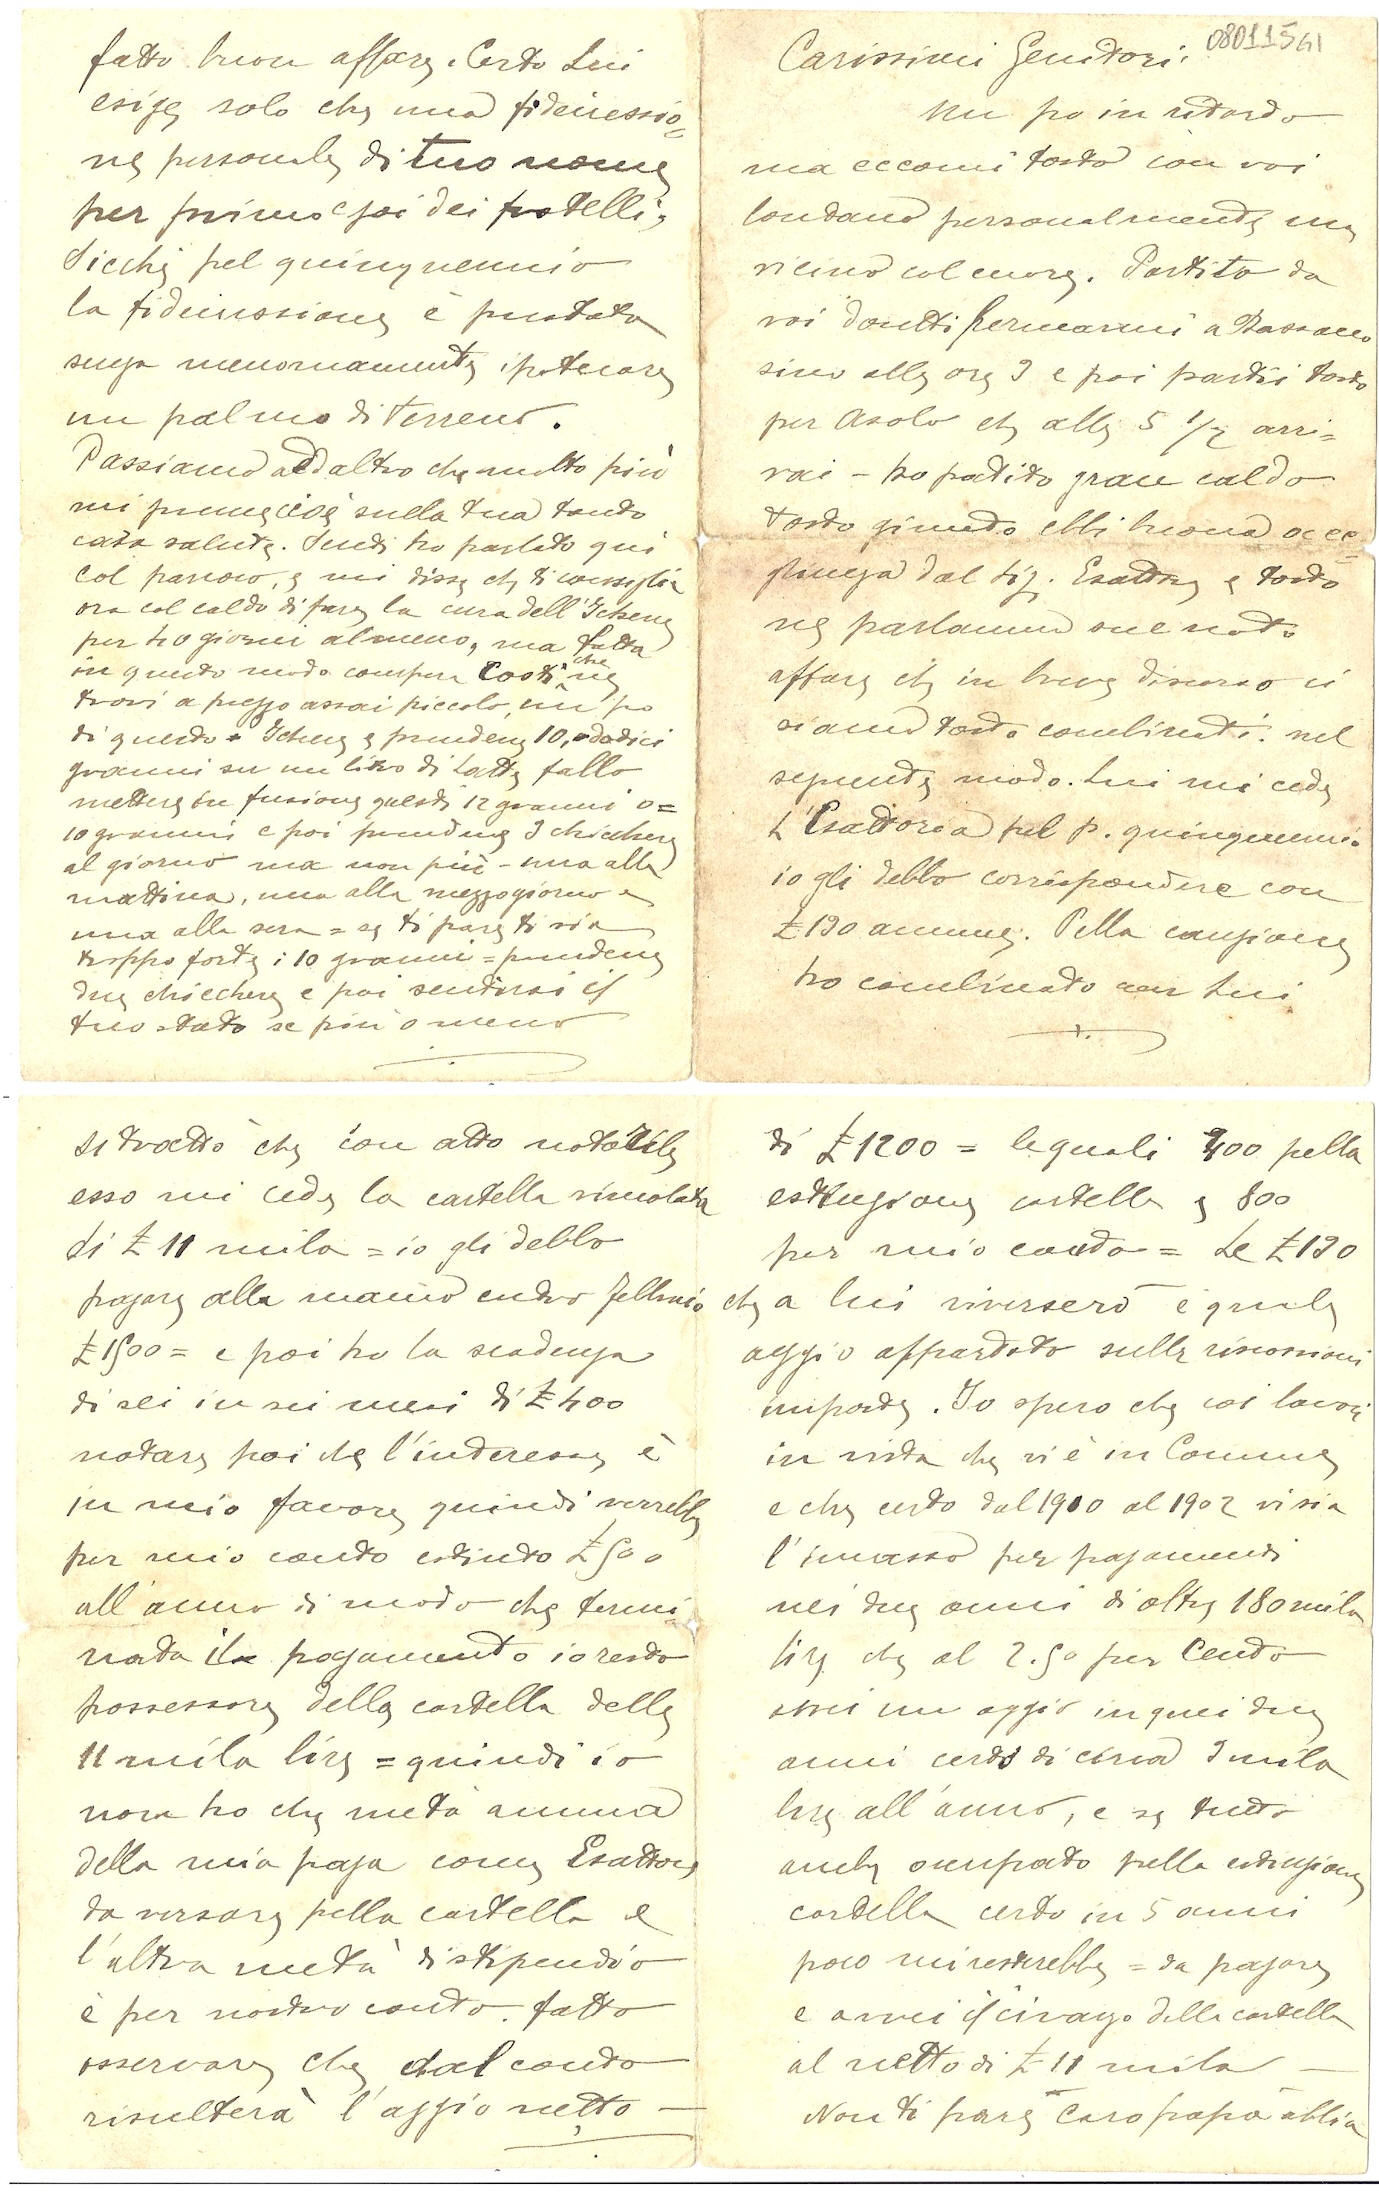 080115 41
Carissimi Genitori.
Un po in ritardo
ma eccomi tosto con voi
lontano personalmente ma
vicino col cuore. Partito da
voi dovetti fermarmi a Bassano
sino alle ore 3 e poi partii tosto
per Asolo che alle 5 1/2 arri=
vai - ho patito gran caldo
tosto giunto ebbi buona acco=
glienza dal Sig. Esattore e tosto
ne parlammo sul noto
affare che in breve discorso ci
siamo tosto combinati. nel
seguente modo. Lui mi cede
L'Esattoria pel p. quinquennio
io gli debbo corrispondere con
£ 190 annue. Pella cauzione
ho combinato con Lui
si trattò che con atto notarile
esso mi cede la cartella vincolata
di £ 11 mila = io gli debbo
pagare alla mano entro febbraio
£ 1500 = e poi ho la scadenza
di sei in sei mesi di £ 400
notare poi che l'interesse è
in mio favore quindi verrebbe
per mio conto estinto £ 500
all'anno di modo che termi=
nata il pagamento io resto
possessore della cartella delle
11 mila lire = quindi io
non ho che metà annua
della mia paga come Esattore
da versare pella cartella e
l'altra metà di stipendio
è per nostro conto. fatto
osservare che dal conto
risulterà l'aggio netto —
di £ 1200 = le quali 400 pella
estinzione cartella e 800
per mio conto = Le £ 190
che a lui riverserò è quale
aggio appartato sulle riscossioni
imposte. Io spero che coi lavori
in vista che vi è in Comune
e che certo dal 1900 al 1902 vi sia
l'incasso per pagamenti
nei due anni di oltre 180 mila
lire che al 2.50 per Cento
avrei un aggio in quei due
anni certo di circa 3 mila
lire all'anno, e se tutto
anche occupato pella estinzione
cartella certo in 5 anni
poco mi resterebbe = da pagare
e avrei il civanzo della cartella
al netto di £ 11 mila —
Non ti pare Caro papà abbia
fatto buon affare. Certo Lui
esige solo che una fideiussio=
ne personale di tuo nome
per primo e poi dei fratelli,
Sicché pel quinquennio
la fideiussione è prestata
senza menomamente ipotecare
un palmo di terreno.
Passiamo ad altro che molto più
mi preme cioè sulla tua tanto
cara salute. Senti ho parlato qui
col parroco, e mi disse che ti consiglia
ora col caldo di fare la cura dell'Ichene
per 40 giorni almeno, ma fatta
in questo modo compera Costì che ne
trovi a prezzo assai piccolo, un po
di questo = Ichene e prendene 10, o dodici
grammi su un litro di Latte fallo
mettere in fusione questi 12 grammi o =
10 grammi e poi prendene 3 chicchere
al giorno ma non più - una alla
mattina, una alla mezzogiorno e
una alla sera = se ti pare ti sia
troppo forte i 10 grammi = prendene
due chicchere e poi sentirai il
tuo stato se più o meno